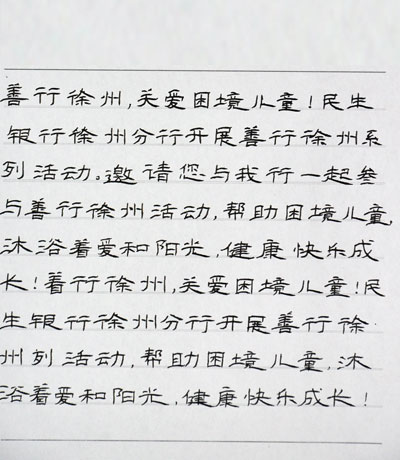 善行徐州,关爱困境儿童!民生
银行徐州分行开展善行徐州系
列活动。邀请您与我行一起参
与善行徐州活动,帮助困境儿童,
沐浴着爱和阳光,健康快乐成
长!善行徐州,关爱困境儿童!民
生银行徐州分行开展善行徐
州列活动,帮助困境儿童,沐
浴着爱和阳光,健康快乐成长!